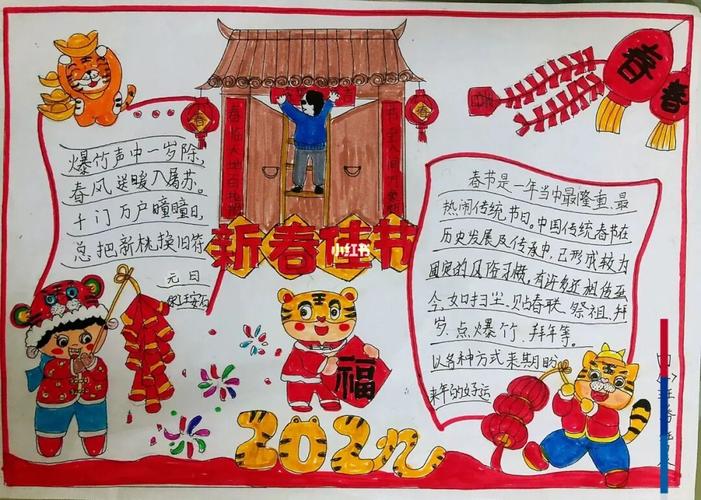 爆竹声中一岁除,
春风送暖入屠苏。
千门万户曈曈日,
总把新桃换旧符
元日
宋王安石
春
春
春
春
新春佳节
小红书
春节是一年当中最隆重、最
热闹传统节日。中国传统春节在
历史发展及传承中,已形成较为
固定的风俗习惯,有许多还相传至
今,如扫尘、贴春联、祭祖、拜
岁、点爆竹、拜年等。
以各种方式来期盼
来年的好运
福
2022